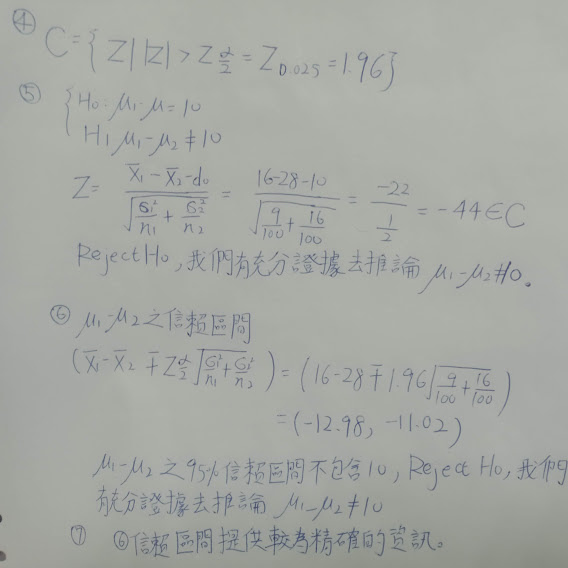 ④ C = { Z | |Z| > Z α/2 = Z 0.025 = 1.96 }
⑤ { H0: μ1-μ = 10
H1 μ1-μ2 ≠ 10
Z = (X̄1 - X̄2 - d0) / √(σ1²/n1 + σ2²/n2) = (16-28-10) / √(9/100 + 16/100) = -22 / (1/2) = -44 ∈ C
Reject H0, 我們有充分證據去推論 μ1-μ2≠10。
⑥ μ1-μ2 之信賴區間
(X̄1-X̄2 ∓ Z α/2 √(σ1²/n1 + σ2²/n2)) = (16-28 ∓ 1.96 √(9/100 + 16/100))
= (-12.98, -11.02)
μ1-μ2 之95%信賴區間不包含10, Reject H0, 我們
有充分證據去推論 μ1-μ2≠10
⑦ ⑥信賴區間提供較為精確的資訊。